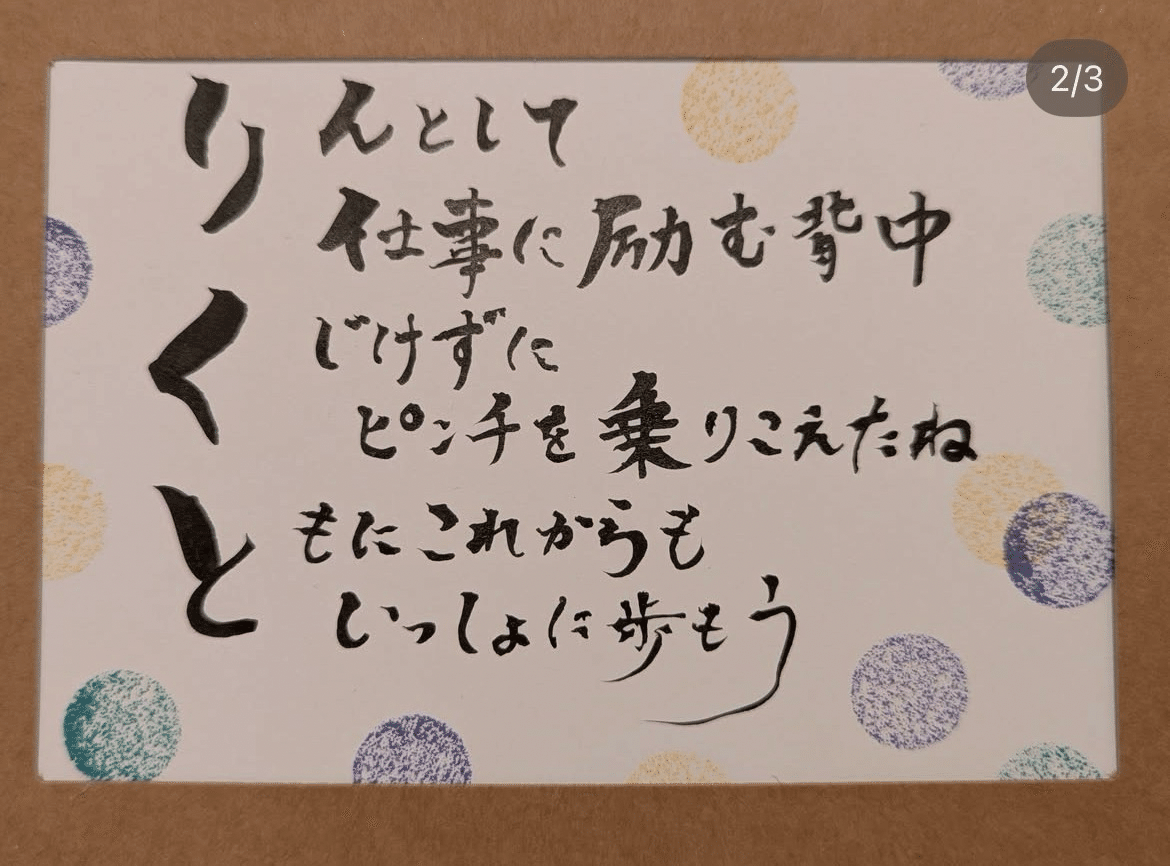 2/3
りんとして
仕事に励む背中
くじけずに
ピンチを乗りこえたね
ともにこれからも
いっしょに歩もう